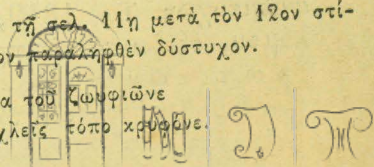 τῇ σελ. 11ῃ μετὰ τὸν 12ον στί-
ον παραληφθὲν δύστυχον.
α τοῦ ζωφιῶνε
χλεῖς τόπο κρυφόνε.